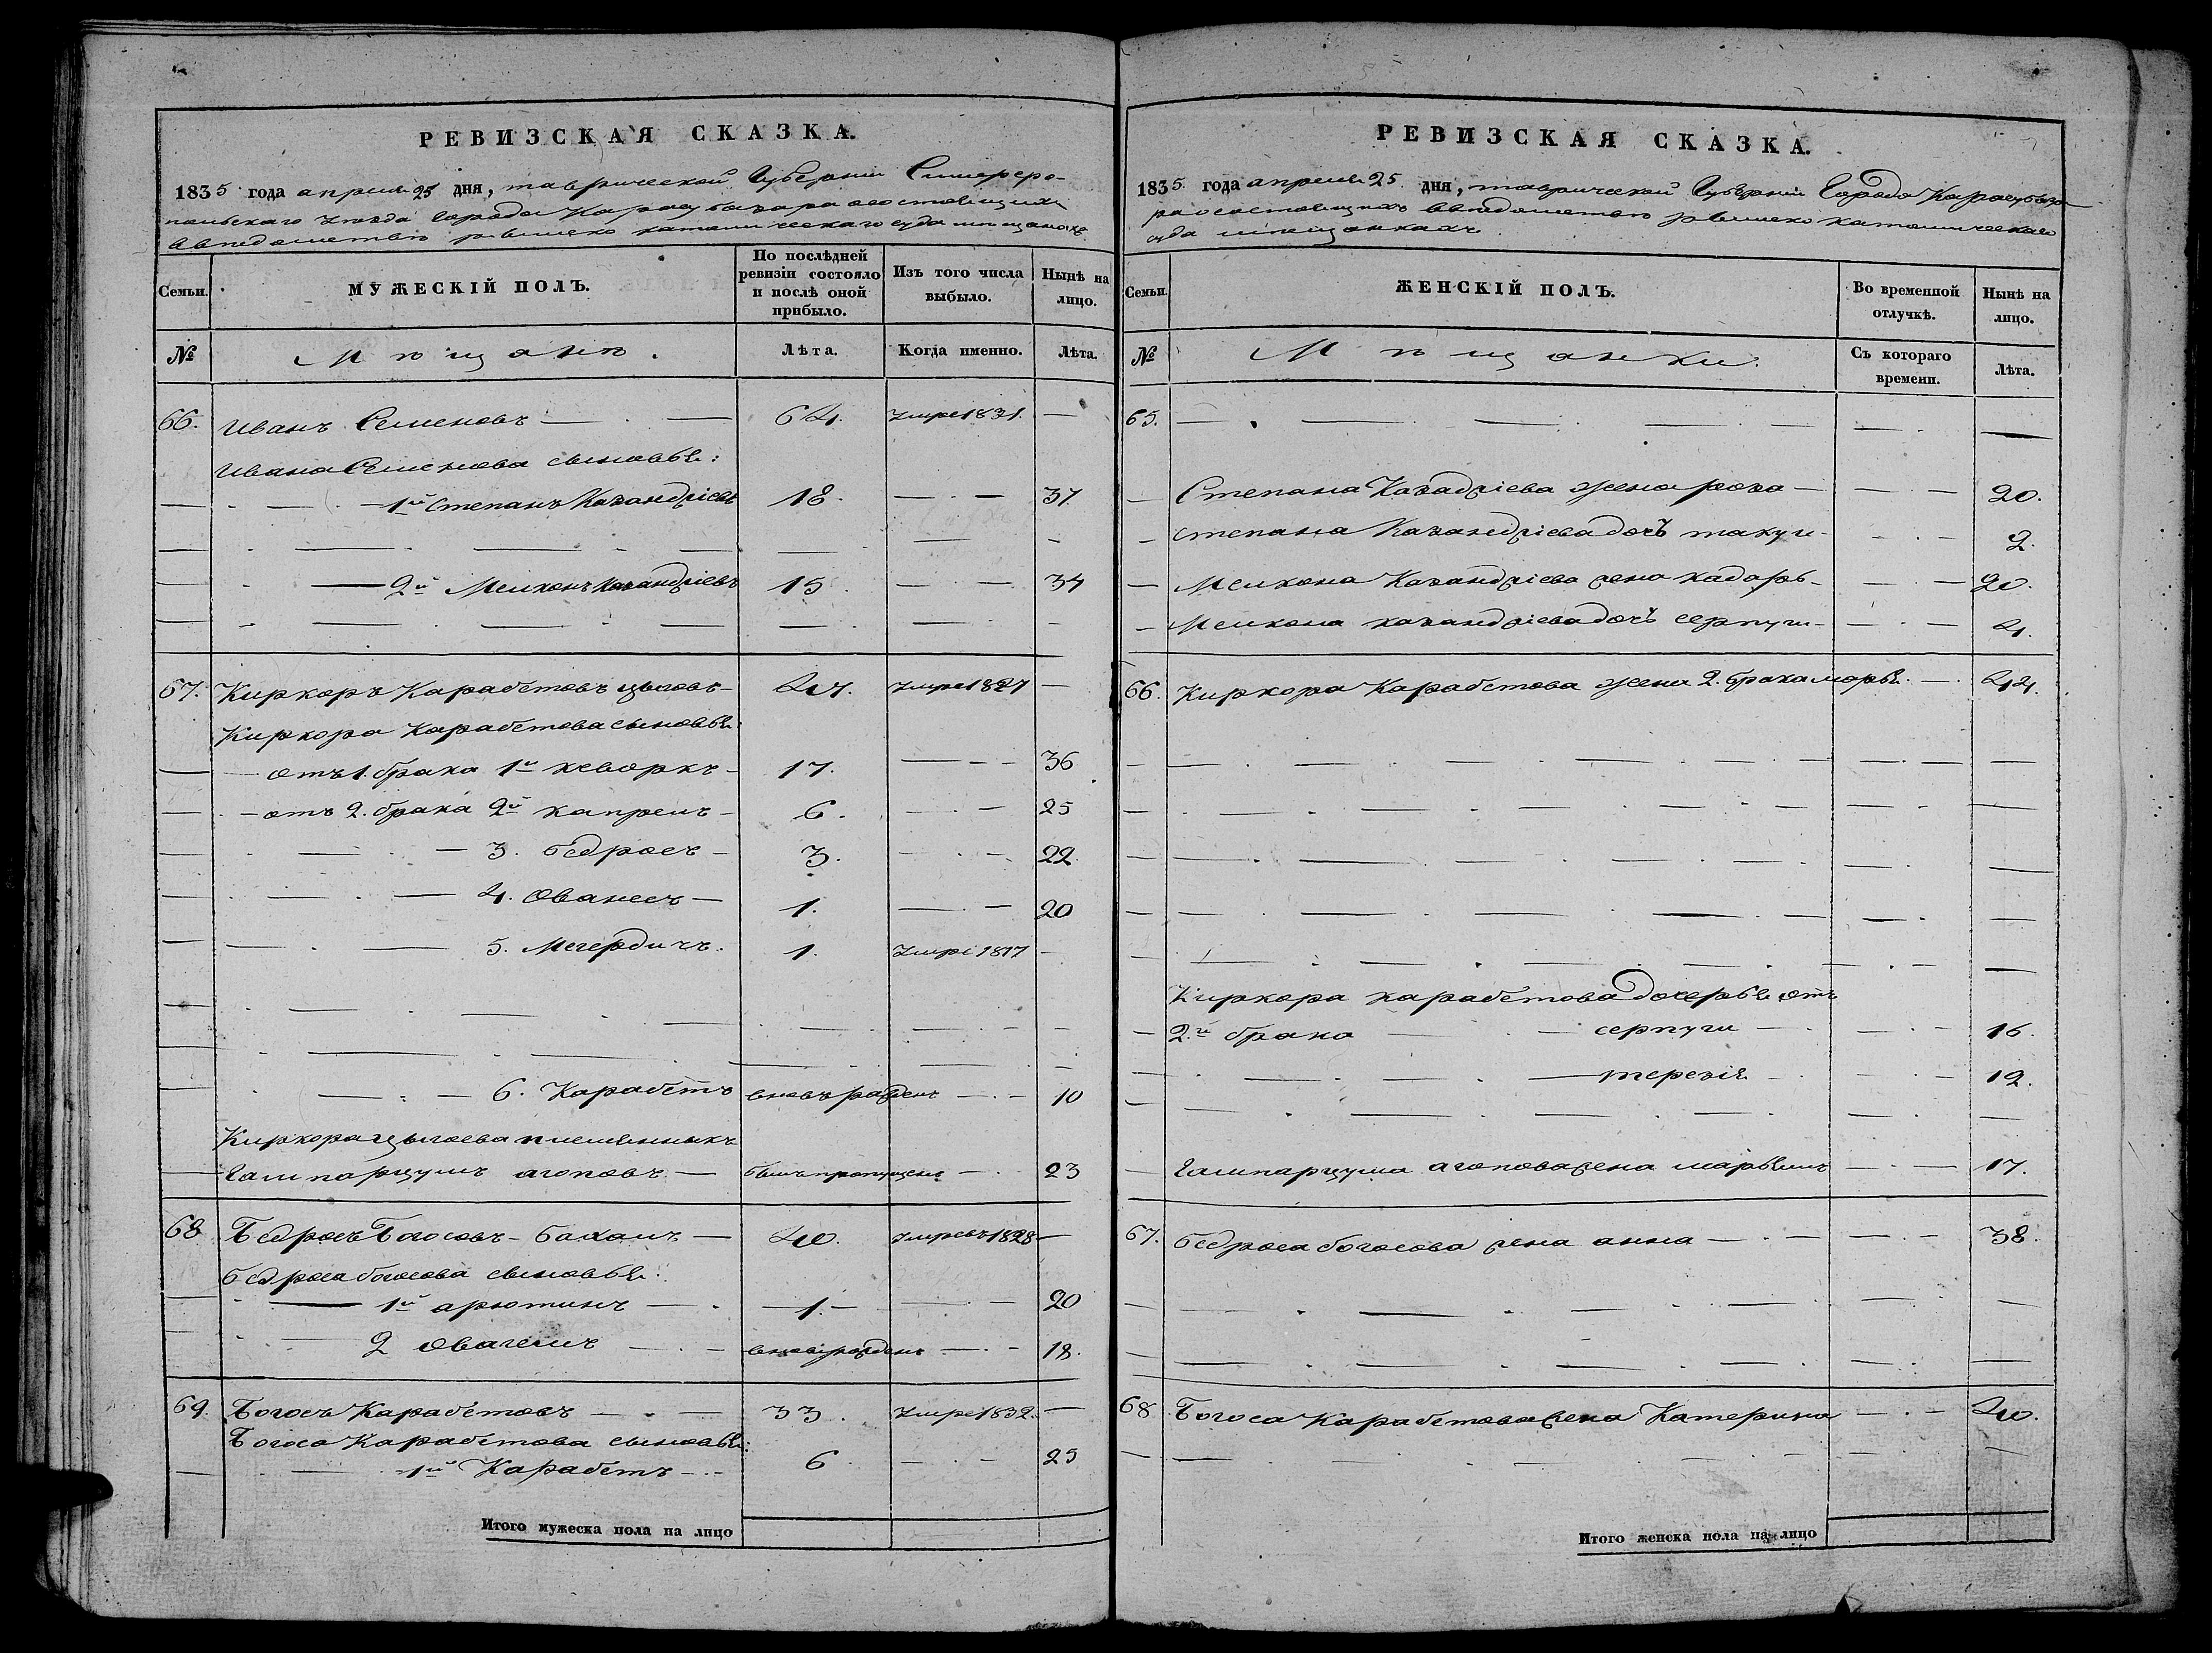 РЕВИЗСКАЯ СКАЗКА.
1835 года апреля 25 дня, таврической Губерніи Симферо-
польскаго уезда Города Карасубазара осостоящихъ
введомстве римско католическаго суда мещанахъ
Семьи.
МУЖЕСКІЙ ПОЛЪ.
По послѣдней ревизіи состояло и послѣ оной прибыло.
Изъ того числа выбыло.
Нынѣ на лицо.
№ Мѣщанѣ. Лѣта. Когда именно. Лѣта.
66. Иванъ Семеновъ — 64. Умре 1831. —
Ивана Семенова сыновья:
— 1й Степанъ Казандріевъ 18. — 37
— 2й Мелконъ Казандріевъ 15 — 34
67. Киркоръ Карабетовъ — Умре 1827 —
Киркора Карабетова сыновья:
— отъ 1. брака 1й кеворкъ — 17. — 36
— отъ 2. брака 2й капрелъ — 6. — 25
— 3. бедросъ — 3. — 22
— 4. Ованесъ — 1. — 20
— 5. Мегердичъ. 1. Умре 1817 —
— 6. Карабетъ вновь рожденъ — 10
Киркора племянникъ
— Гампарцумъ агоповъ — былъ пропущенъ — 23
68 Бедросъ Богосовъ — 40. Умре въ 1828 —
бедроса богосова сыновья:
— 1й арютинъ — 1. — 20
— 2 — вновь рожденъ — 18.
69. Богосъ Карабетовъ — 33. Умре 1832. —
Богоса Карабетова сыновья:
— 1й Карабетъ — 6 — 25
Итого мужеска пола на лицо
РЕВИЗСКАЯ СКАЗКА.
1835. года апреля 25. дня, таврической Губерніи Города Карасубаза-
ра осостоящихъ введомстве римско католическаго
суда мещанкахъ
Семьи.
ЖЕНСКІЙ ПОЛЪ.
Во временной отлучкѣ.
Нынѣ на лицо.
№ Мѣщанки. Съ котораго времени. Лѣта.
65. —
— Степана Казадріева жена роза — 20.
— степана Казандріева дочъ такуги — 2.
— Мелкона Казандріева жена — 20.
— Мелкона казандріева дочъ серпуги — 4.
66. Киркора Карабетова жена 2. брака марья. — 44.
Киркора карабетова дочерья отъ
— 2й брака — серпуги — 16.
— терезія — 12.
— Гампарцума агопова жена марьямъ — 17.
67. бедроса богосова жена анна — 38.
68 Богоса Карабетова жена Катерина — 40.
Итого женска пола на лицо